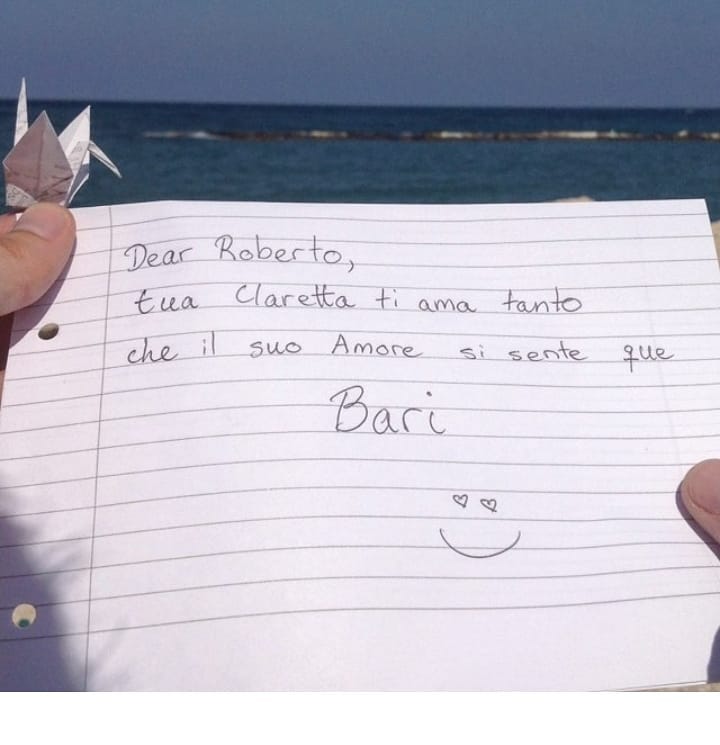 Dear Roberto,
tua Claretta ti ama tanto
che il suo Amore si sente que
Bari